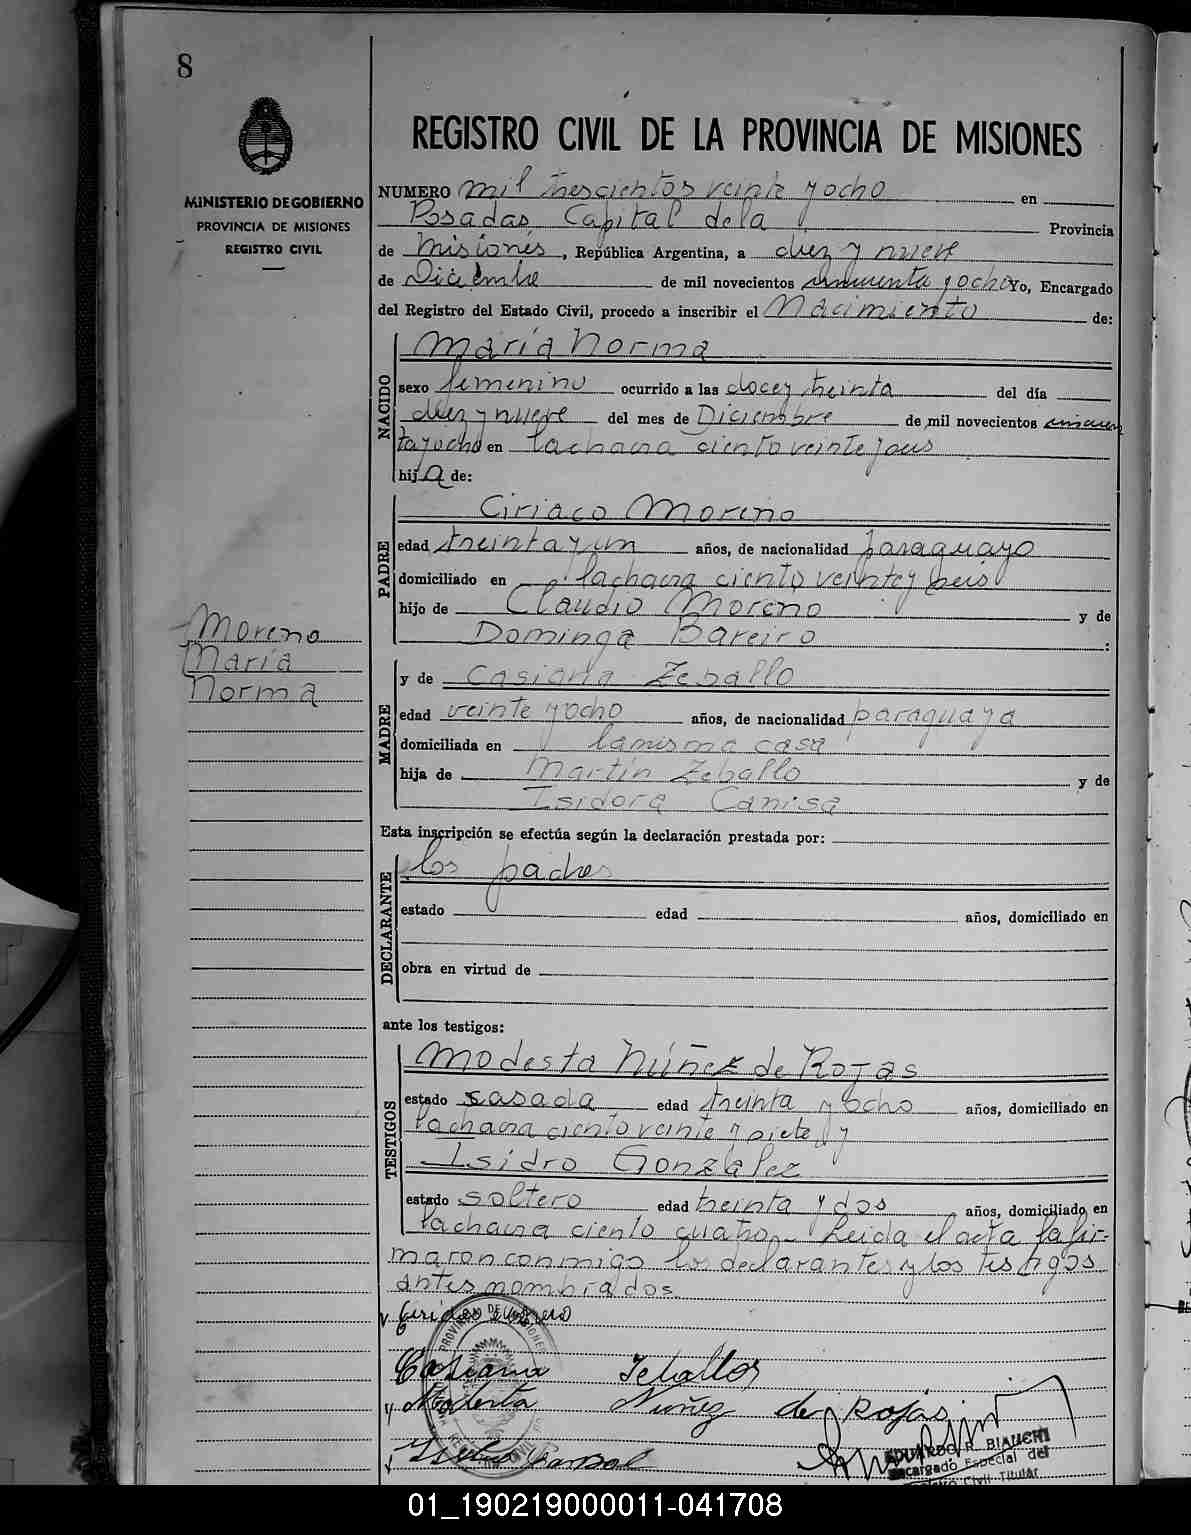 8
MINISTERIO DE GOBIERNO
PROVINCIA DE MISIONES
REGISTRO CIVIL
Moreno
María
Norma
REGISTRO CIVIL DE LA PROVINCIA DE MISIONES
NUMERO mil trescientos veinte y ocho en
Posadas Capital de la Provincia
de Misiones, República Argentina, a diez y nueve
de Diciembre de mil novecientos cincuenta y ocho Yo, Encargado
del Registro del Estado Civil, procedo a inscribir el Nacimiento de:
NACIDO
María Norma
sexo femenino ocurrido a las doce y treinta del día
diez y nueve del mes de Diciembre de mil novecientos cincuen
ta y ocho en la chacra ciento veinte y seis
hija de:
PADRE
Ciriaco Moreno
edad treinta y un años, de nacionalidad paraguayo
domiciliado en la chacra ciento veinte y seis
hijo de Claudio Moreno y de
Dominga Bareiro :
MADRE
y de Casiana Zeballo
edad veinte y ocho años, de nacionalidad paraguaya
domiciliada en la misma casa
hija de Martín Zeballo y de
Isidora Canisa
Esta inscripción se efectúa según la declaración prestada por:
DECLARANTE
los padres
estado edad años, domiciliado en
obra en virtud de
ante los testigos:
TESTIGOS
Modesta Núñez de Rojas
estado casada edad treinta y ocho años, domiciliado en
la chacra ciento veinte y siete y
Isidro González
estado soltero edad treinta y dos años, domiciliado en
la chacra ciento cuatro.- Leida el acta la fir-
maron conmigo los declarantes y los testigos
antes nombrados.
Casiana Zeballos
Modesta Nuñez de Rojas
EDUARDO R. BIANCHI
Encargado Especial del
Registro Civil Titular
01_190219000011-041708